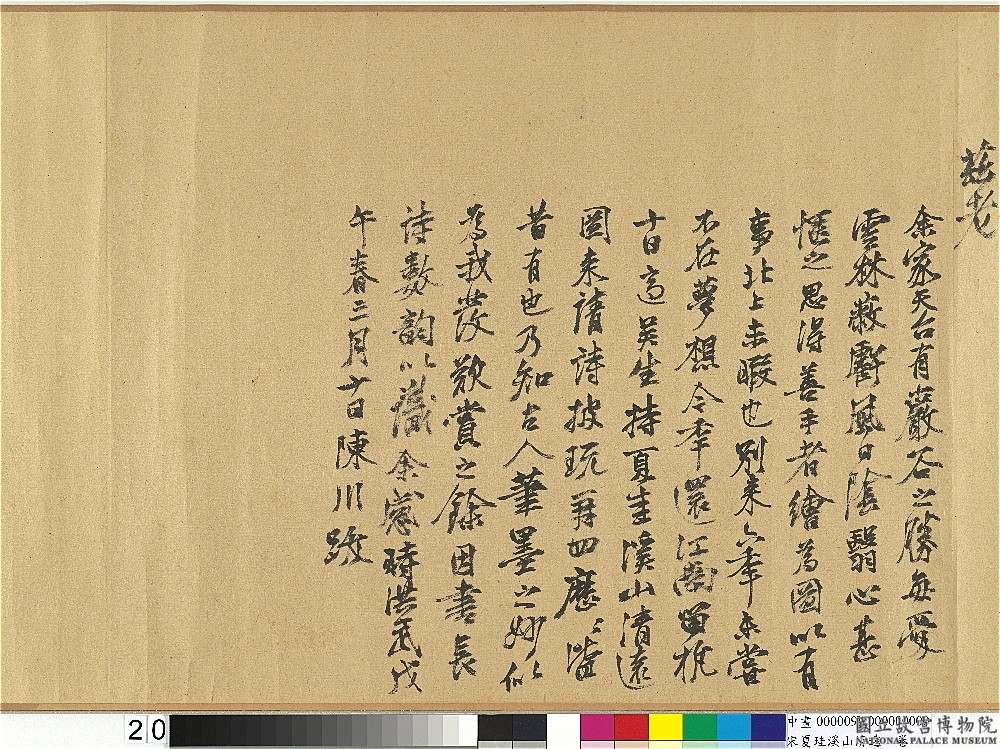 老
余家天台有巖谷之勝每愛
雲林蔽虧風日陰翳心甚
愜之思得善手者繪為圖以有
事北上未暇也別來六年未嘗
不在夢想今年還江南留杭
十日適吳生持夏圭溪山清遠
圖來請詩披玩再四歷歷皆
昔有也乃知古人筆墨之妙似
為我發歎賞之餘因書長
詩數韻以識余感時洪武戊
午春三月十日陳川跋
20
宋夏珪溪山清遠 卷
國立故宮博物院
NATIONAL PALACE MUSEUM